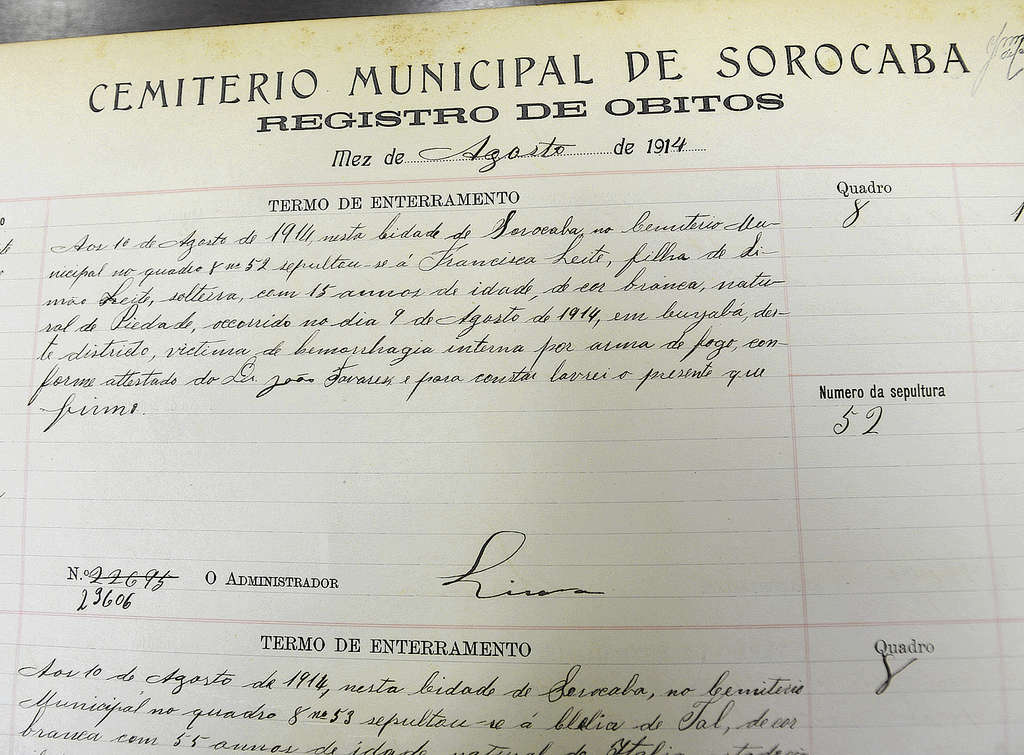 CEMITERIO MUNICIPAL DE SOROCABA
REGISTRO DE OBITOS
Mez de Agosto de 1914
TERMO DE ENTERRAMENTO
Quadro
8
Aos 10 de Agosto de 1914, nesta Cidade de Sorocaba, no Cemiterio Mu-
nicipal no quadro 8 nº 52 sepultou-se á Francisca Leite, filha de Si-
mão Leite, solteira, com 15 annos de idade, de cor branca, natu-
ral de Piedade, occorrido no dia 9 de Agosto de 1914, em Cuyabá, des-
te distrido, victima de hemorrhagia interna por arma de fogo, con-
forme attestado do Dr. João Tavares, e para constar lavrei o presente que
firmo.
Numero da sepultura
52
N.º 22695 O ADMINISTRADOR
23606
Lima
TERMO DE ENTERRAMENTO
Quadro
8
Aos 10 de Agosto de 1914, nesta Cidade de Sorocaba, no Cemiterio
Municipal no quadro 8 nº 53 sepultou-se á Clelia de Tal, de cor
branca com 55 annos de idade, natural da Italia